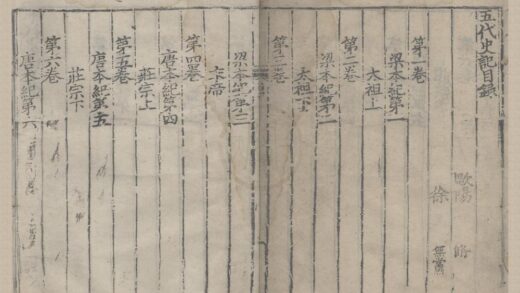 五代史記目錄
歐陽脩
徐無黨
第一卷
梁本紀第一
太祖上
第二卷
梁本紀第二
太祖下
第三卷
梁本紀第三
末帝
第四卷
唐本紀第四
莊宗上
第五卷
唐本紀第五
莊宗下
第六卷
唐本紀第六